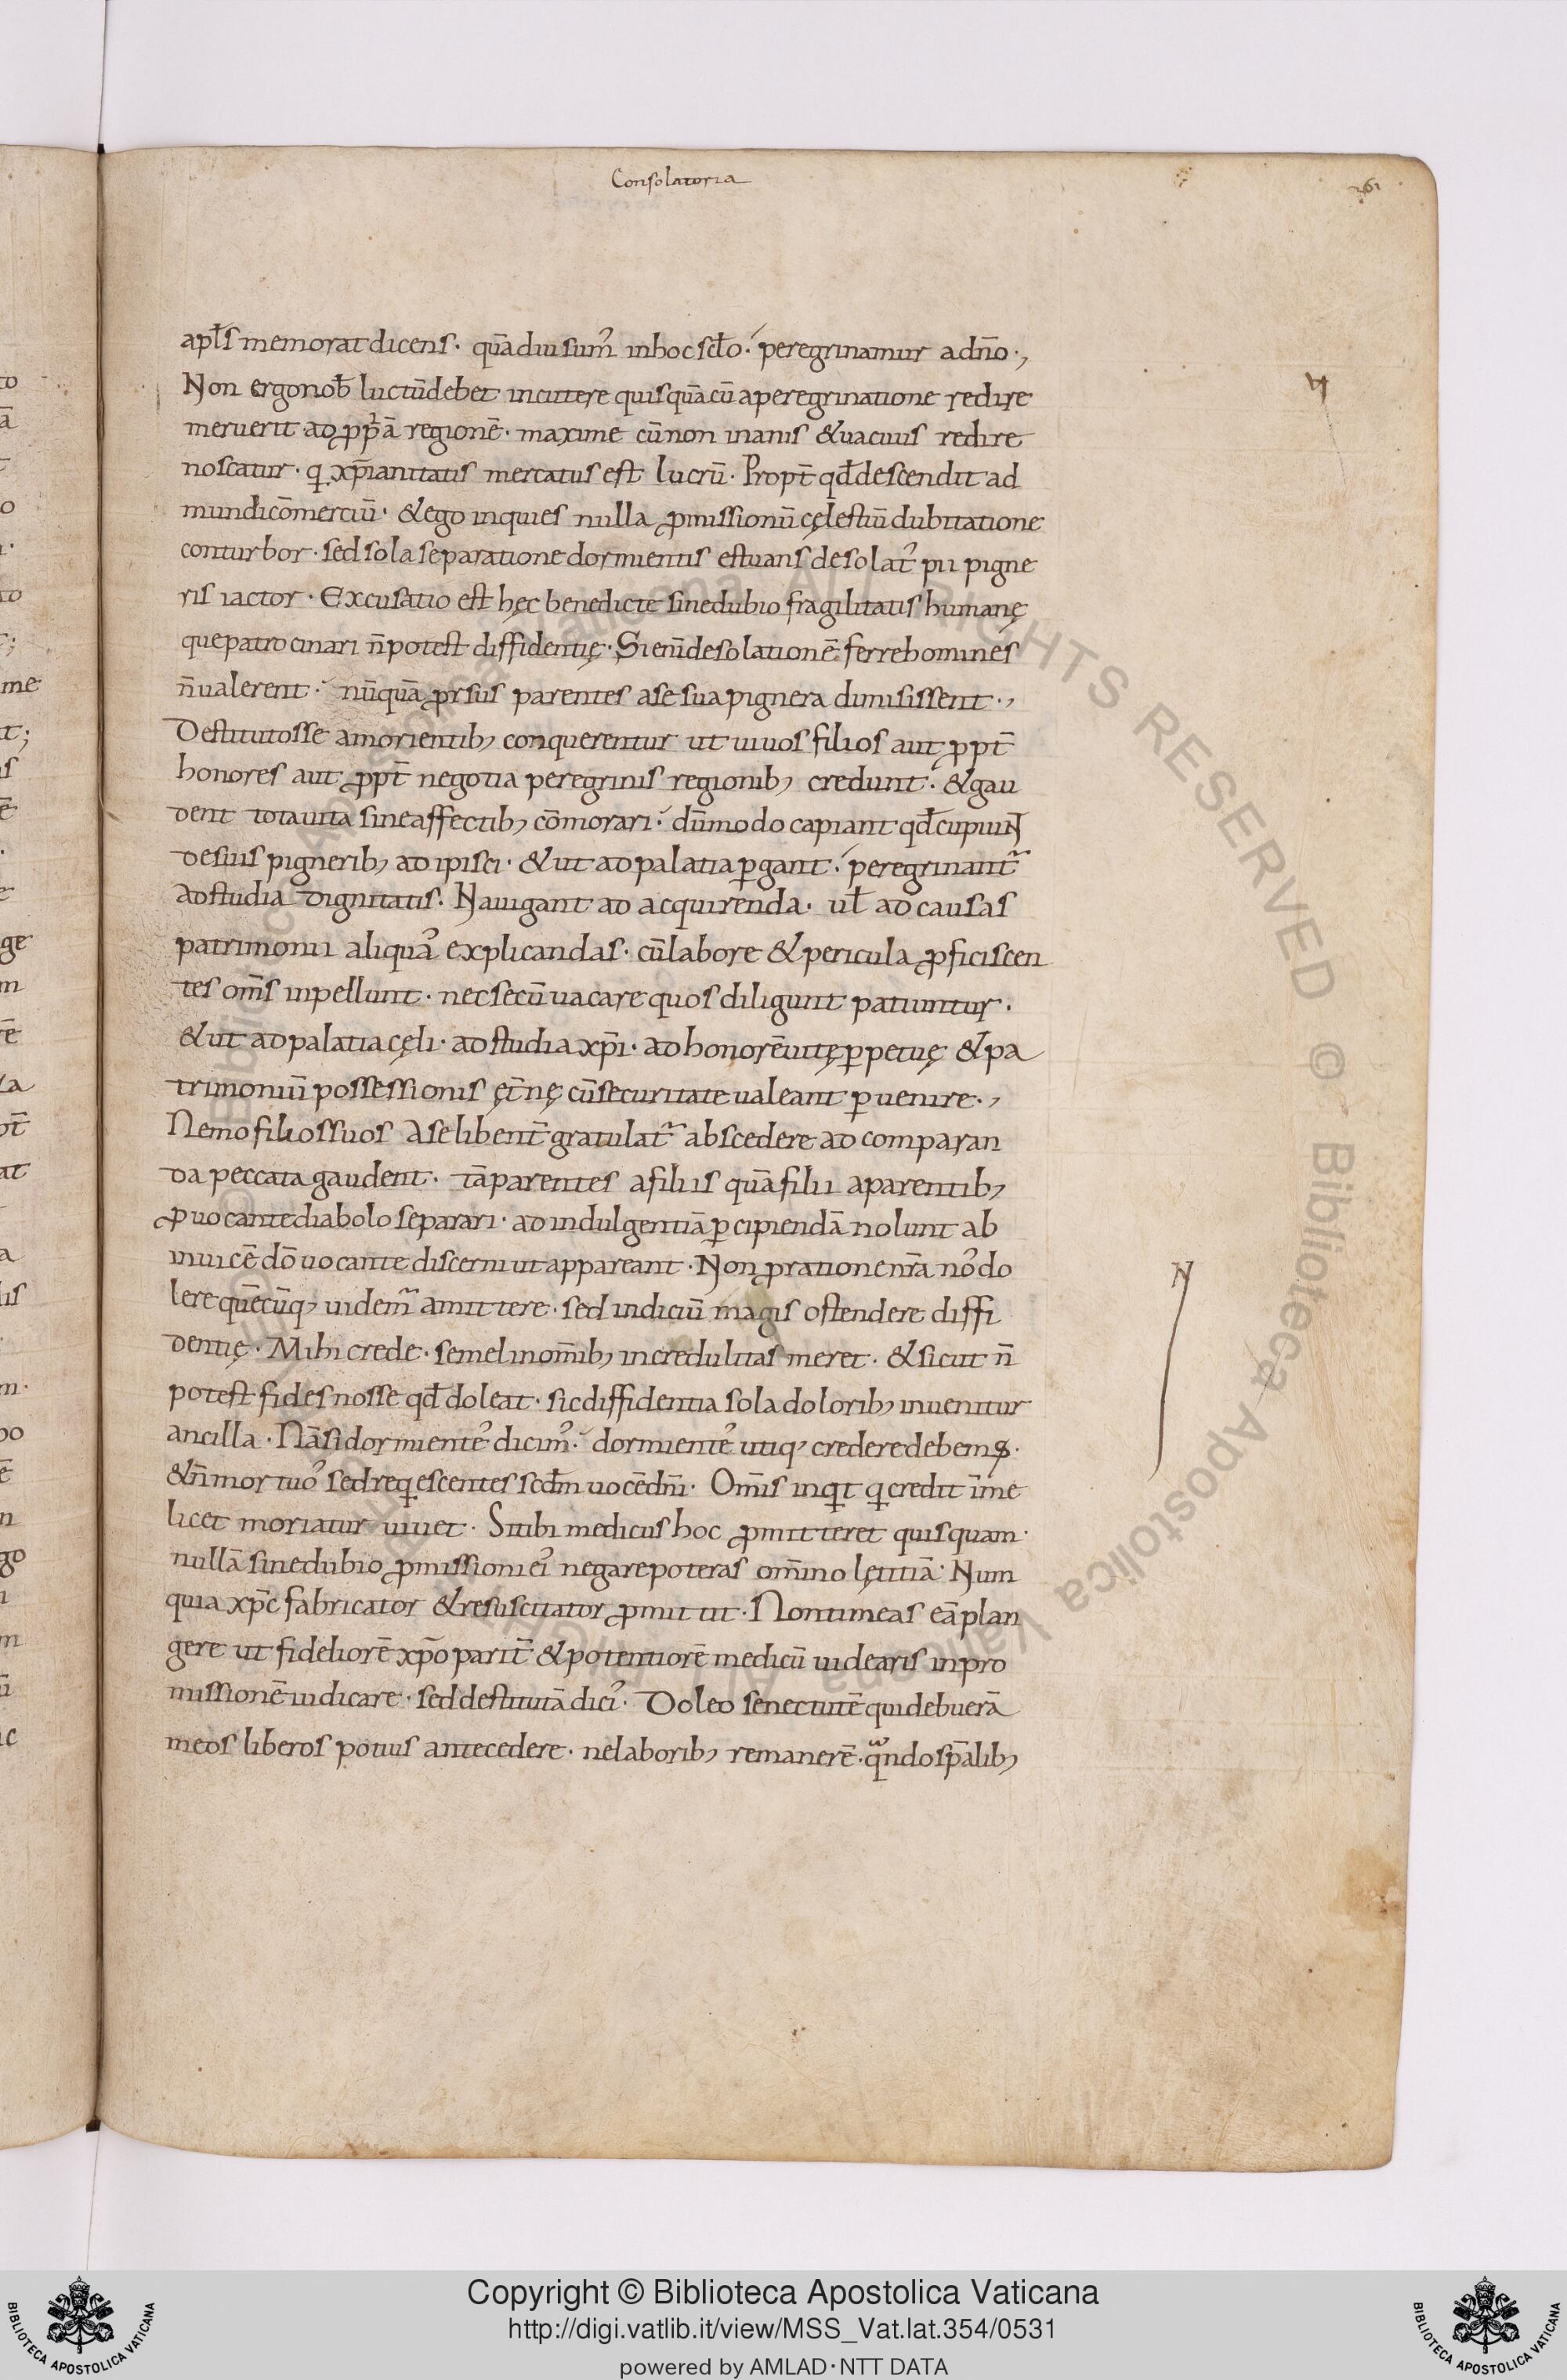 Consolatoria
261
apl̄s memorat dicens · quādiu sum᾿ in hoc scl̄o ·́ peregrinamur a dn̄o ·,
Non ergo nob̄ luctū debet incutere quisquā cū a peregrinatione redire
meruerit · ad ꝓpriā regionē · maxime cū non inanis & uacuus redire
noscatur · q̣ xp̄ianitatis mercatus est lucrū · Propt̄ qd̄ descendit ad
mundi cōmerciū · & ego inquies nulla ꝓmissionū cęlestiū dubitatione
conturbor · sed sola separatione dormientis estuans desolat᾿ pii pigne
ris iactor · Excusatio est hęc benedicte sine dubio fragilitatis humanę
que patrocinari n̄ potest diffidentię · Si enī desolationē ferre homines
n̄ ualerent ·́ nūquā ꝓrsus parentes a se sua pignera dimisissent ·,
Destitutosse a morientib; conquerentur ut uiuos filios aut ꝓpt̄
honores aut ꝓpt̄ negotia peregrinis regionib; credunt ·́ & gau
dent tota uita sine affectib; cōmorari ·́ dūmodo capiant qd̄ cupiuNT
de suis pignerib; adipisci · & ut ad palatia ꝑgant ·́ peregrinant᷑
ad studia dignitatis · Nauigant ad acquirenda · ul̄ ad causas
patrimonii aliqua᾿ explicandas · cū labore & pericula ꝓficiscen
tes om̄s inpellunt · nec secū uacare quos diligunt patiuntur ·
& ut ad palatia cęli · ad studia xp̄i · ad honorē uitę ꝑpetuę & pa
trimoniū possessionis ęt̄nę cū securitate ualeant ꝑuenire ·,
Nemo filios suos a se libent̄ gratulat᷑ abscedere ad comparan
da peccata gaudent · tā parentes a filiis quā filii a parentib;
ꝓuocante diabolo separari · ad indulgentiā ꝑcipiendā nolunt ab
inuicē dō uocante discerni ut appareant · Non ꝓ ratione nr̄a no᾿ do
lere quēcūq; uidem᷑ amittere · sed indiciū magis ostendere diffi
dentię · Mihi crede · semel in om̄ib; incredulitas meret · & sicut n̄
potest fides nosse qd̄ doleat · sic diffidentia sola dolorib; inuenitur
ancilla · Nā si dormiente᾿ dicim᾿ ·́ dormiente᾿ utiq; credere debemꝰ ·
& n̄ mortuo᾿ sed reqescentes scd̄m uocē dn̄i · Om̄is inqt q credit ī me
licet moriatur uiuet · Si tibi medicus hoc ꝓmitteret quisquam ·
nullā sine dubio ꝓmissioni ei᾿ negare poteras om̄ino lętitiā · Num
quia xp̄c fabricator & resuscitator ꝓmittit · Non timeas eā plan
gere ut fideliorē xp̄o parit̄ & potentiorē medicū uidearis in pro
missionē iudicare · sed destitutā dici᾿ · Doleo senectutē qui debuerā
meos liberos potius antecedere · ne laborib; remanerē · qͣndo sp̄alib;
N
RIGHTS RESERVED © Biblioteca Apostolica Vaticana
Copyright © Biblioteca Apostolica Vaticana
http://digi.vatlib.it/view/MSS_Vat.lat.354/0531
powered by AMLAD·NTT DATA
BIBLIOTECA APOSTOLICA VATICANA
BIBLIOTECA APOSTOLICA VATICANA